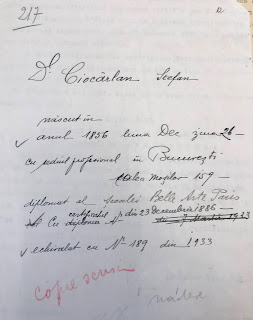 217
Dl Ciocârlan Ștefan
născut în
✓ anul 1856 luna Dec ziua 26 -
cu sediul profesional în București
Calea Moșilor 159 -
diplomat al școalei Belle Arte Paris
Cu diploma certificatul No din 23 Decembrie 1886 -
7 Martie 1933
✓ echivalat cu No 189 din 1933
copie scrisă